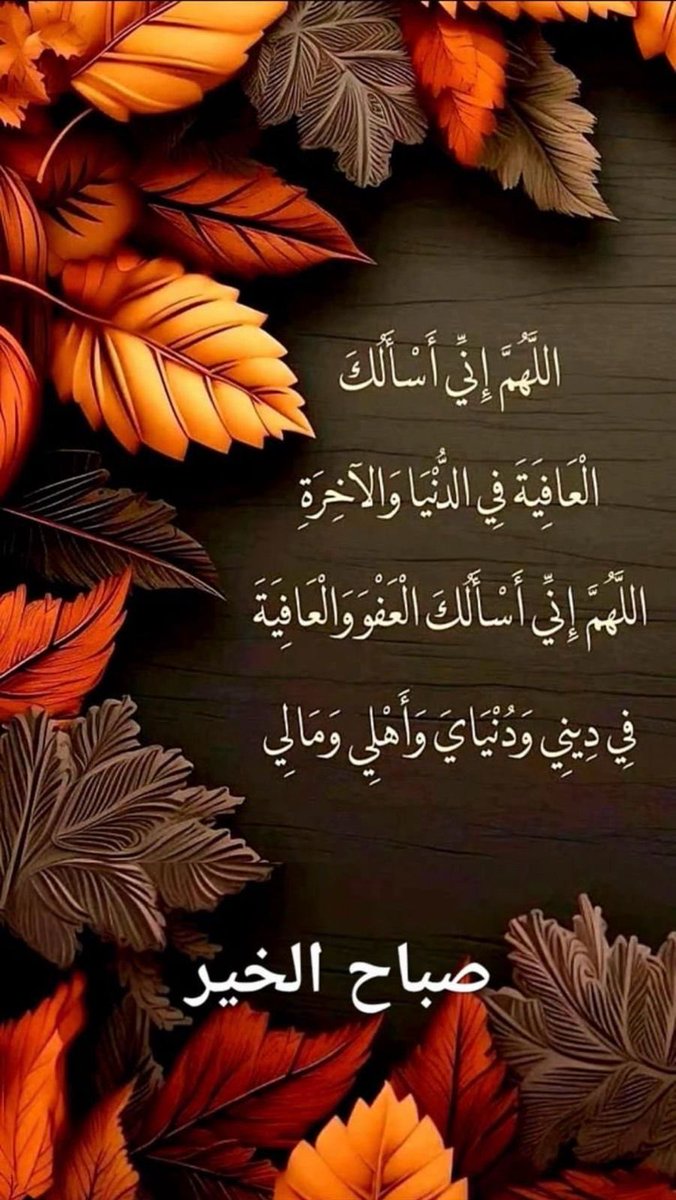 اللَّهُمَّ إِنِّي أَسْأَلُكَ
الْعَافِيَةَ فِي الدُّنْيَا وَالآخِرَةِ
اللَّهُمَّ إِنِّي أَسْأَلُكَ الْعَفْوَ وَالْعَافِيَةَ
فِي دِينِي وَدُنْيَايَ وَأَهْلِي وَمَالِي
صباح الخير